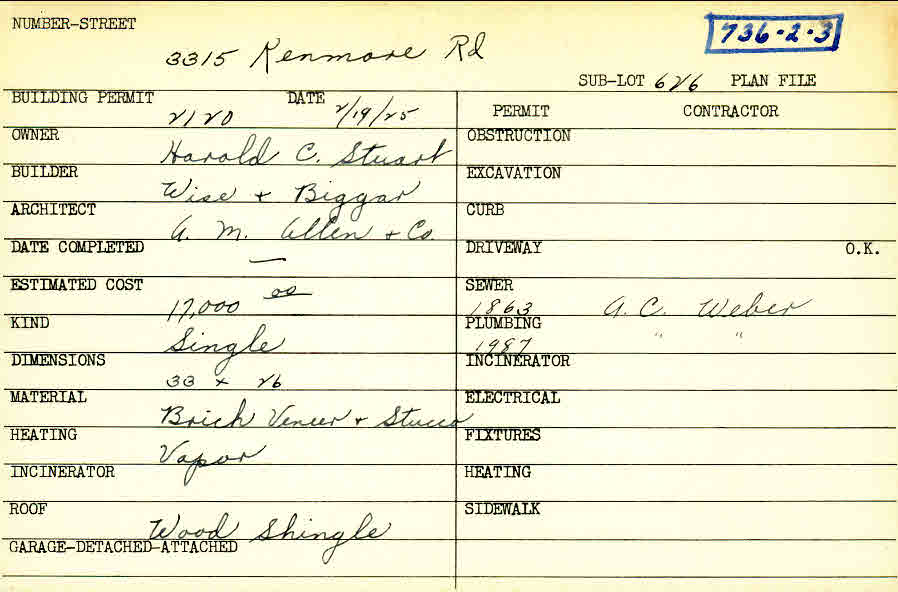 NUMBER-STREET
736-2-3
3315 Kenmore Rd
SUB-LOT 626 PLAN FILE
BUILDING PERMIT DATE
2120 2/19/25
PERMIT CONTRACTOR
OWNER
Harold C. Stuart
BUILDER
Wise + Biggar
ARCHITECT
A. M. Allen + Co
DATE COMPLETED
—
ESTIMATED COST
17,000 00
KIND
Single
DIMENSIONS
33 x 26
MATERIAL
Brick Veneer + Stucco
HEATING
Vapor
INCINERATOR
ROOF
Wood Shingle
GARAGE-DETACHED-ATTACHED
OBSTRUCTION
EXCAVATION
CURB
DRIVEWAY O.K.
SEWER
1863 A. C. Weber
PLUMBING
1987 " "
INCINERATOR
ELECTRICAL
FIXTURES
HEATING
SIDEWALK